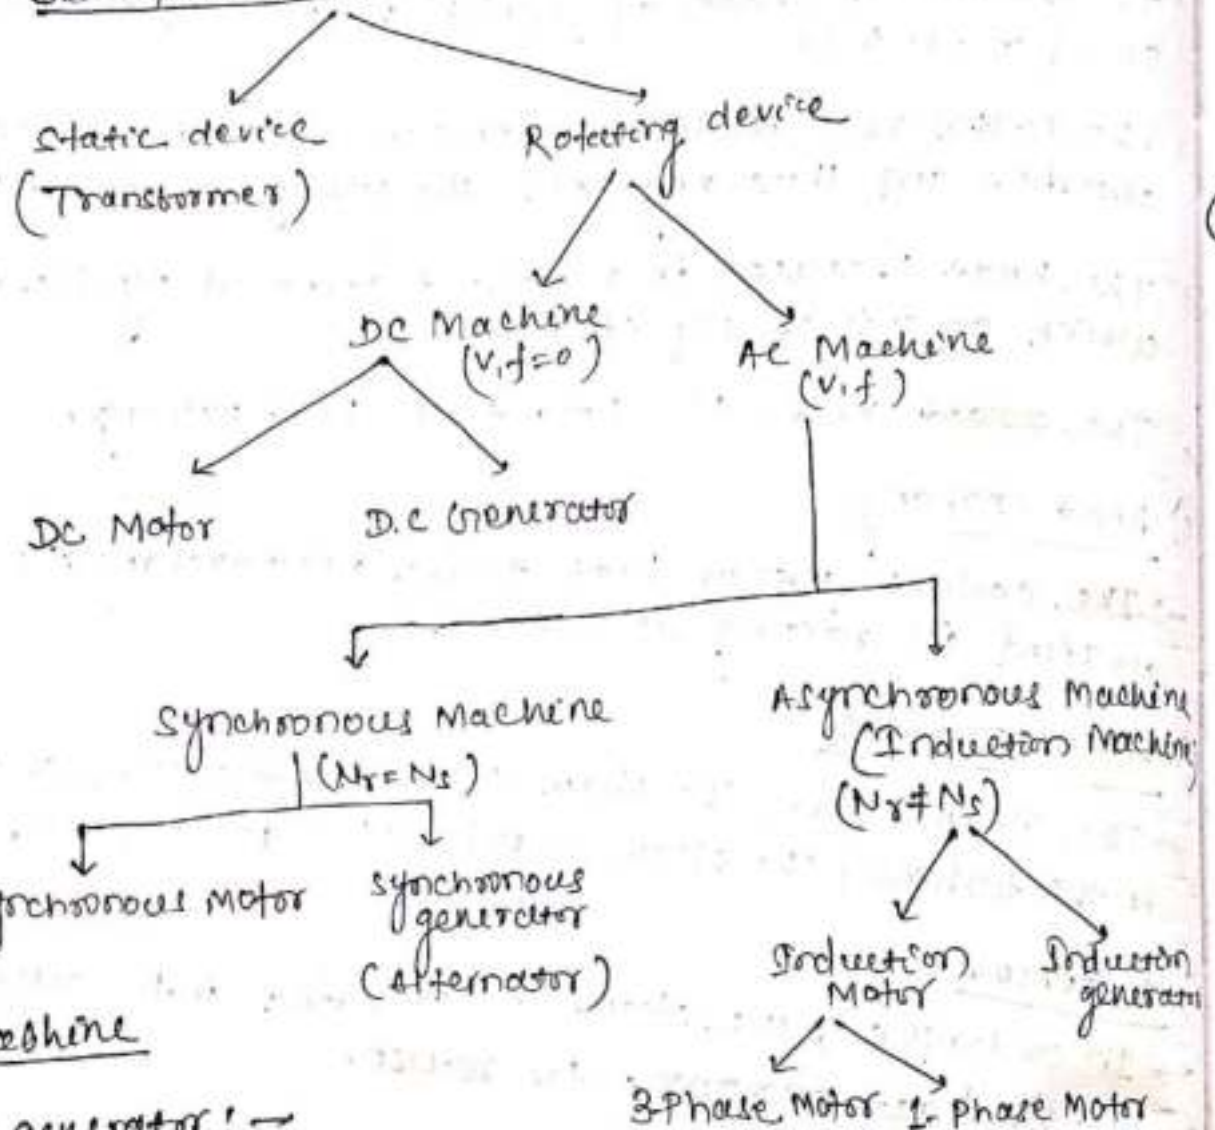 Static device
Rotating device
(Transformer)
DC Machine
(V, f=0)
AC Machine
(V, f)
DC Motor
D.C Generator
Synchronous Machine
(Nr = Ns)
Asynchronous Machine
(Induction Machine
(Nr ≠ Ns)
nchronous Motor
Synchronous
generator
(Alternator)
Induction
Motor
Induction
generato
achine
3-Phase Motor
1-phase Motor
generator : →